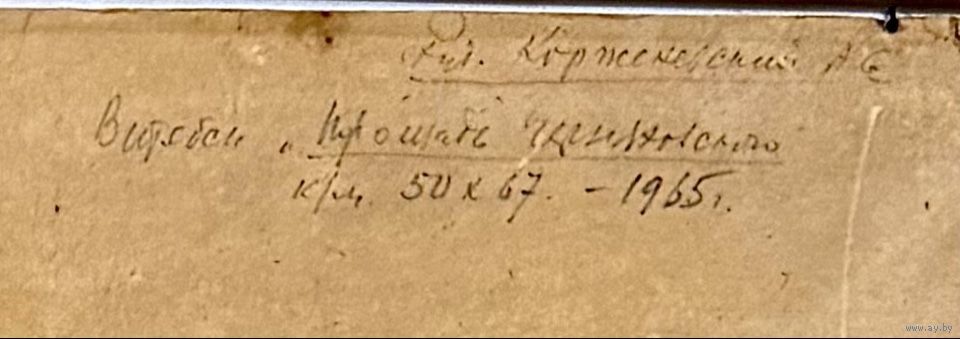 Худ. Корженевский А Е
Витебск "Площадь
к/м. 50 х 67. - 1965г.
www.ay.by